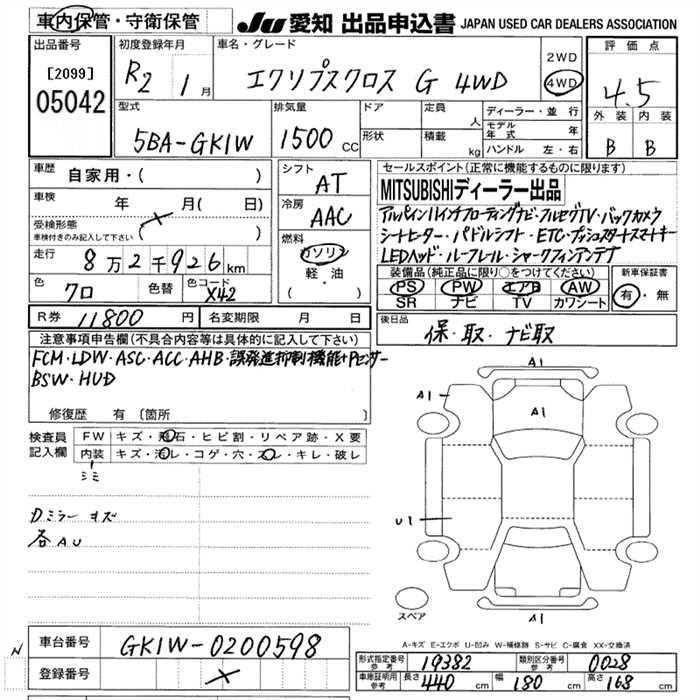 車内保管・守衛保管
JU 愛知 出品申込書 JAPAN USED CAR DEALERS ASSOCIATION
出品番号
[2099]
05042
初度登録年月
R2 年 1月
車名・グレード
エクリプスクロス G 4WD
2WD
4WD
評価点
4.5
外装 内装
B B
型式
5BA-GK1W
排気量
1500cc
ドア
形状
定員 人
積載 kg
ディーラー・並行
モデル年式 年
ハンドル 左・右
車歴 自家用・( )
車検 年 月( 日)
受検形態
車検付きのみ記入して下さい ( )
走行 8万2千926km
色 クロ 色替 色コード X42
シフト
AT
冷房
AAC
燃料
ガソリン
軽・油
( )
セールスポイント(正常に機能するものに限ります)
MITSUBISHIディーラー出品
アルパイン11インチフローティングナビ・フルセグTV・バックカメラ
シートヒーター・パドルシフト・ETC・プッシュスタートスマートキー
LEDヘッド・ルーフレール・シャークフィンアンテナ
装備品(純正品に限り○をつけてください)
PS PW エアB AW
SR ナビ TV カワシート
新車保証書
有・無
R券 11800円 名変期限 月 日
後日品
保・取・ナビ取
注意事項申告欄(不具合内容等は具体的に記入して下さい)
FCM・LDW・ASC・ACC・AHB・誤発進抑制機能+Pセンサー
BSW・HUD
修復歴 有 〔箇所 〕
検査員
記入欄
FW キズ・飛石・ヒビ割・リペア跡・X要
内装 キズ・汚レ・コゲ・穴・スレ・キレ・破レ
シミ
Dミラー キズ
各AU
A1
A1
A1
U1
スペア
A1
A-キズ E-エクボ U-凹み W-補修跡 S-サビ C-腐食 XX-交換済
N
車台番号 GK1W-0200598
登録番号
形式指定番号 参考 19382
類別区分番号 参考 0028
車庫証明用 参考 長さ 440cm 幅 180cm 高さ 168cm